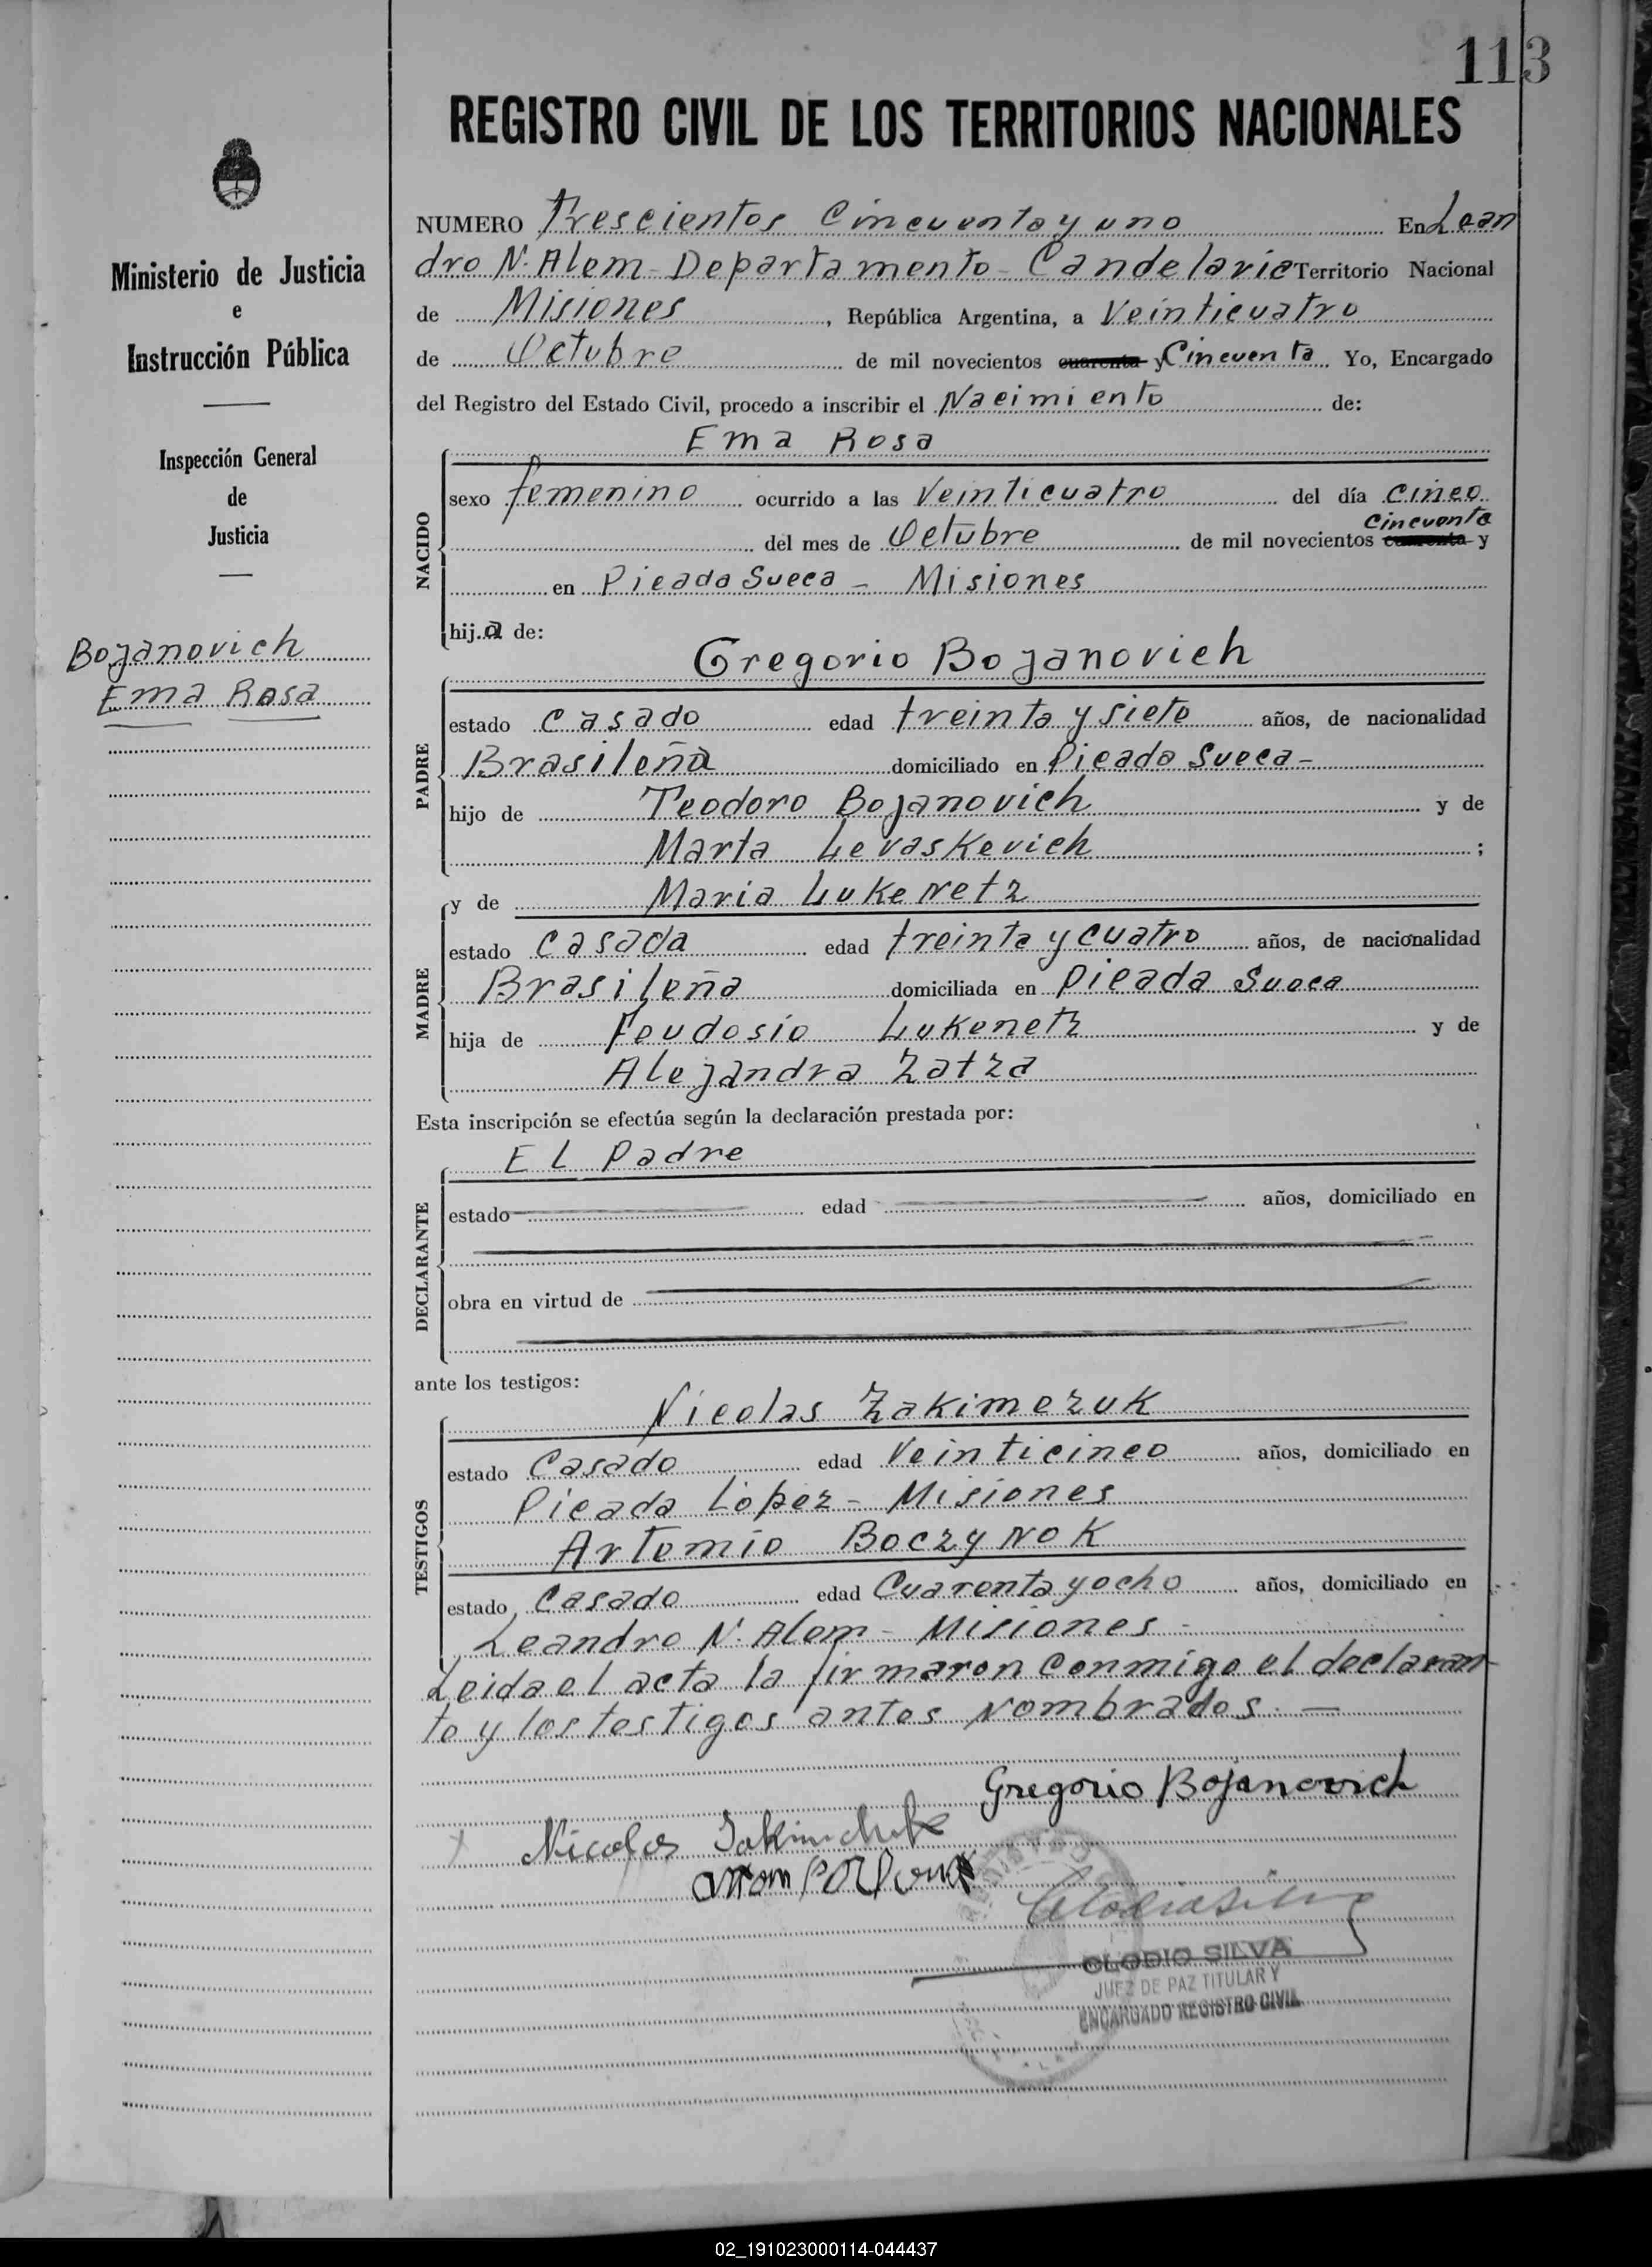 113
REGISTRO CIVIL DE LOS TERRITORIOS NACIONALES
Ministerio de Justicia
e
Instrucción Pública
Inspección General
de
Justicia
Bojanovich
Ema Rosa
NUMERO Trescientos Cincuenta y uno En Lean
dro N. Alem - Departamento - Candelaria Territorio Nacional
de Misiones, República Argentina, a Veinticuatro
de Octubre de mil novecientos cuarenta y Cincuenta Yo, Encargado
del Registro del Estado Civil, procedo a inscribir el Nacimiento de:
Ema Rosa
NACIDO
sexo femenino ocurrido a las Veinticuatro del día cinco
Cincuenta
del mes de Octubre de mil novecientos cuarenta y
en Picada Sueca - Misiones
hija de:
Gregorio Bojanovich
PADRE
estado Casado edad treinta y siete años, de nacionalidad
Brasileña domiciliado en Picada Sueca -
hijo de Teodoro Bojanovich y de
Marta Levaskevich ;
y de Maria Lukenetz
MADRE
estado Casada edad treinta y cuatro años, de nacionalidad
Brasileña domiciliada en Picada Sueca
hija de Feudosio Lukenetz y de
Alejandra Zatza
Esta inscripción se efectúa según la declaración prestada por:
El Padre
DECLARANTE
estado edad años, domiciliado en
obra en virtud de
ante los testigos:
Nicolas Zakimezuk
TESTIGOS
estado Casado edad Veinticinco años, domiciliado en
Picada López - Misiones
Artemio Boczynok
estado Casado edad Cuarenta y ocho años, domiciliado en
Leandro N. Alem - Misiones -
Leida el acta la firmaron conmigo el declaran-
te y los testigos antes nombrados. —
Gregorio Bojanovich
Nicolas
CLODIO SILVA
JUEZ DE PAZ TITULAR Y
ENCARGADO REGISTRO CIVIL
02_191023000114-044437